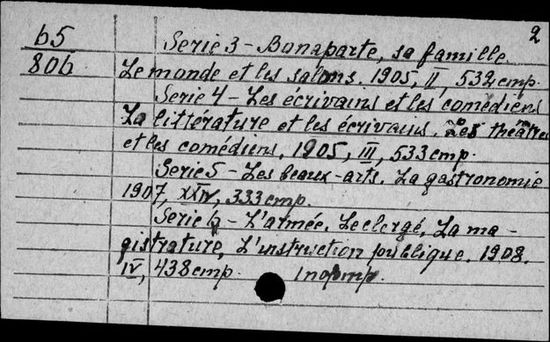 2
65 Serie 3 - Bonaparte, sa famille.
806 Le monde et les salons. 1905. II, 532 стр.
Serie 4 - Les écrivains et les comédiens
La littérature et les écrivains. Les théâtres
et les comédiens. 1905, III, 533 стр.
Serie 5 - Les beaux-arts. La gastronomie
1907, XXIV, 333 стр.
Serie 6 - L'armée. Le clergé. La ma-
gistrature, L'instruction publique. 1908.
IV, 438 стр.